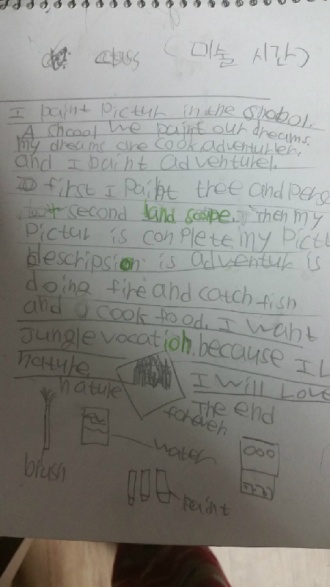 art class (미술 시간)
I paint Pictur in the shobol.
A shcoal we paint our dreams.
My dreams are cook adventurler.
and I paint adventurel.
first I paint tree and pers
second land scape. Then my
pictur is conplete my pict
descripsion is adventur is
doing fire and catch fish
and cook food. I want
Jungle vocation. because I L
nature. I will Love
nature forever
The end
brush
water
paint